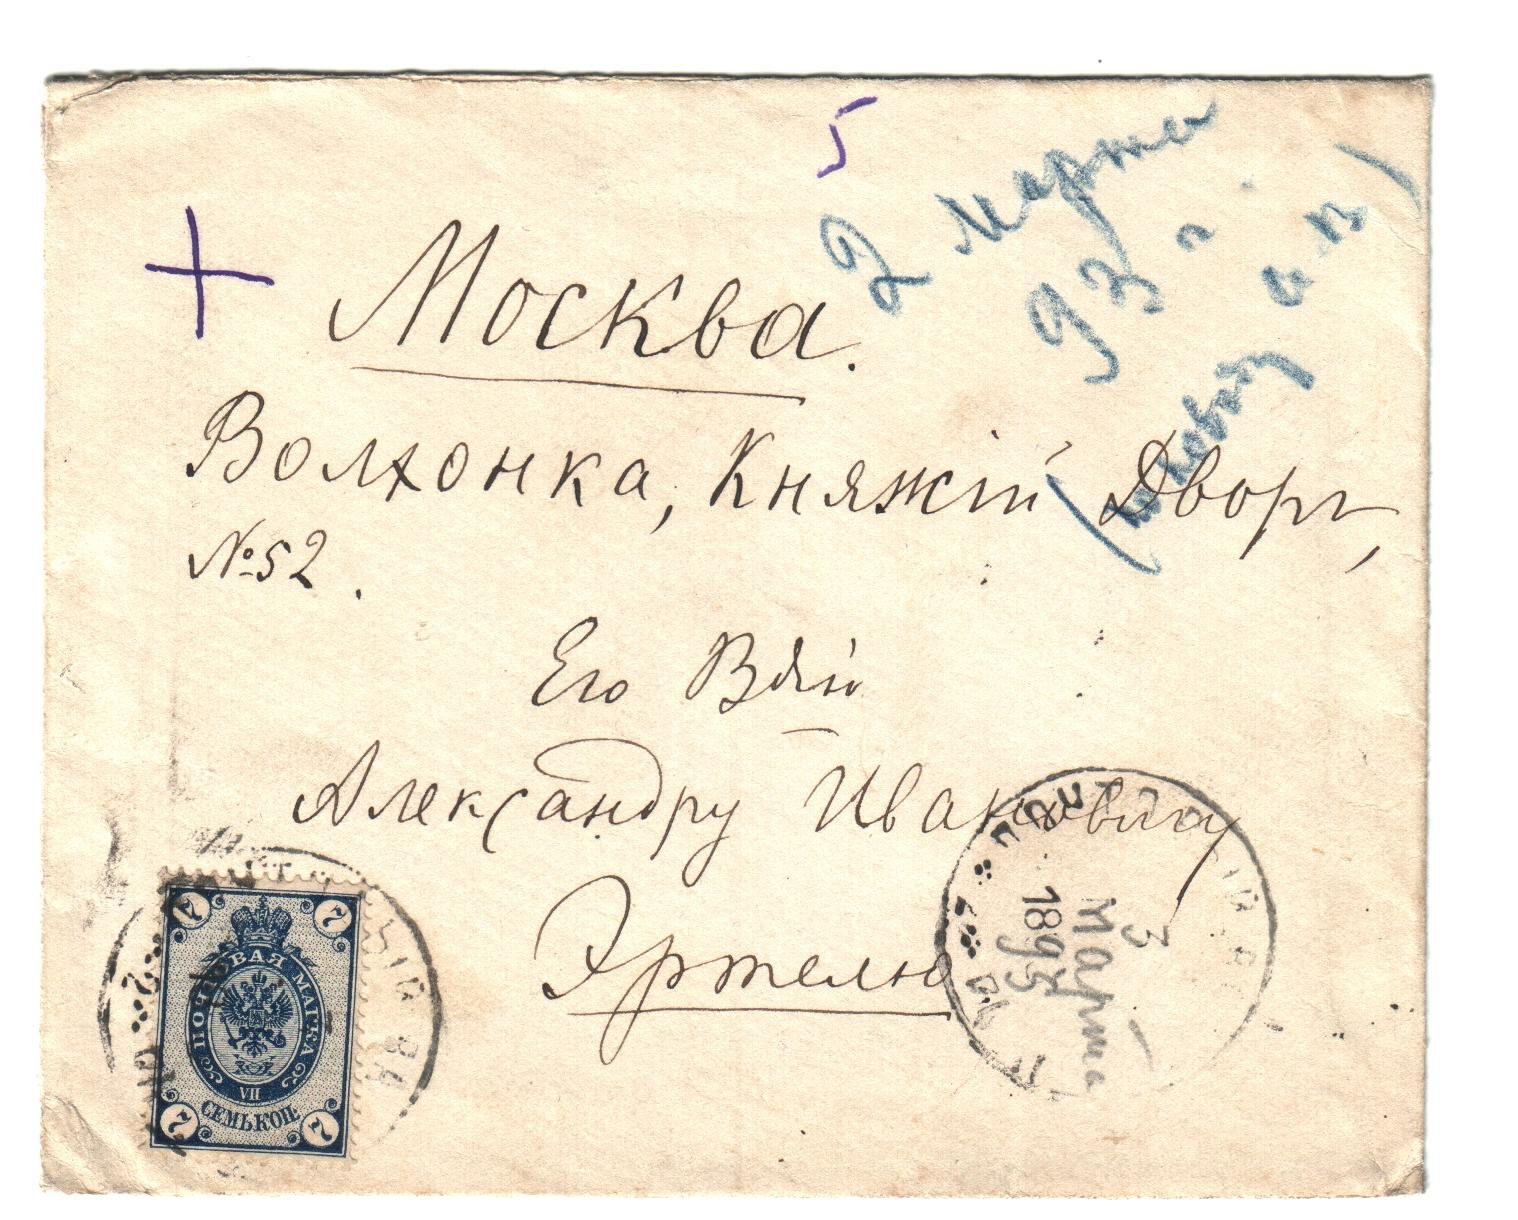 5
2 Марта
93 г
Москва.
Волхонка, Княжій Дворъ,
№ 52.
Его Вдію
Александру Ивановичу
Эртелю
3
Марта
1893
7 7
ПОЧТОВАЯ МАРКА
VII
СЕМЬ КОП.
7 7